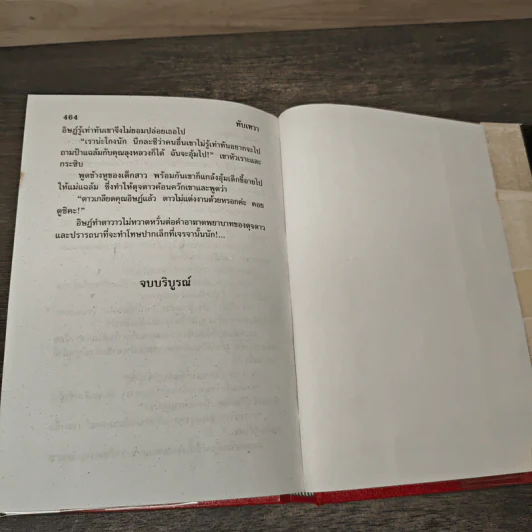 464
ทับเทวา
อิษฎ์รู้เท่าทันเขาจึงไม่ยอมปล่อยเธอไป
"เราน่ะโกงนัก นึกละซีว่าคนอื่นเขาไม่รู้เท่าทันอยากจะไป
ถามป้าแฉล้มกับคุณลุงหลวงก็ได้ ฉันจะอุ้มไป!" เขาหัวเราะและ
กระซิบ
พูดข้างหูของเด็กสาว พร้อมกันเขาก็แกล้งอุ้มเด็กขี้อายไป
ให้แม่แฉล้ม ซึ่งทำให้ดุจดาวค้อนควักเขาและพูดว่า
"ดาวเกลียดคุณอิษฎ์แล้ว ดาวไม่แต่งงานด้วยหรอกค่ะ คอย
ดูซิคะ!"
อิษฎ์ทำตาวาวไม่หวาดหวั่นต่อคำอาฆาตพยาบาทของดุจดาว
และปรารถนาที่จะทำโทษปากเล็กที่เจรจานั้นนัก!...
จบบริบูรณ์